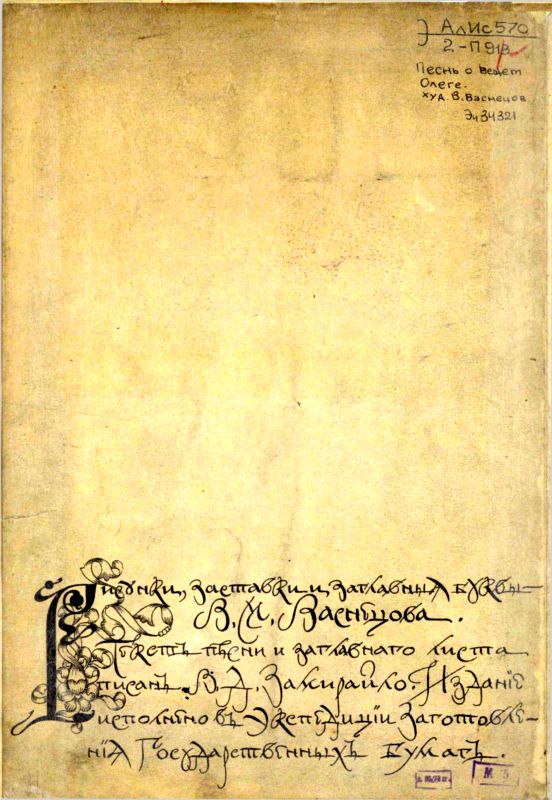 Э АлИс570
2-П918
Песнь о вещем
Олеге.
худ. В. Васнецов
Эи34321
Рисунки, заставки и заглавныя буквы
В. М. Васнецова.
Текстъ пѣсни и заглавнаго листа
писанъ В. Д. Замирайло. Изданіе
исполнено въ Экспедиціи Заготовле-
нія Государственныхъ Бумагъ.